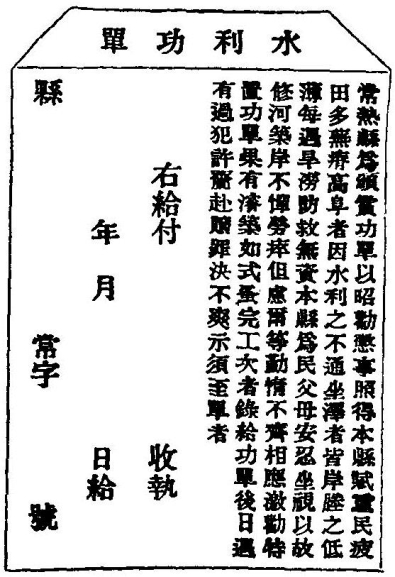 水利功單
常熟縣爲頒賞功單以昭勸懲事照得本縣賦重民疲
田多蕪瘠高阜者因水利之不通坐澤者皆岸塍之低
薄每遇旱澇防救無資本縣爲民父母安忍坐視以故
修河築岸不憚勞瘁但慮爾等勤惰不齊相應激勸特
置功單果有濬築如式蚤完工次者錄給功單後日遇
有過犯許赴贖決不爽示須至單者
右給付 收執
年 月 日給
縣 常字 號